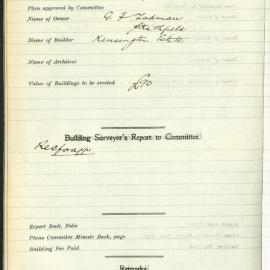 Plan approved by Committee
Name of Owner G. F. Zadman
Strathfield
Name of Builder Kensington
Name of Architect
Value of Buildings to be erected £90
Building Surveyor's Report to Committee
Report Book, Folio
Plans Committee Minute Book, page
Building Fee Paid
Remarks